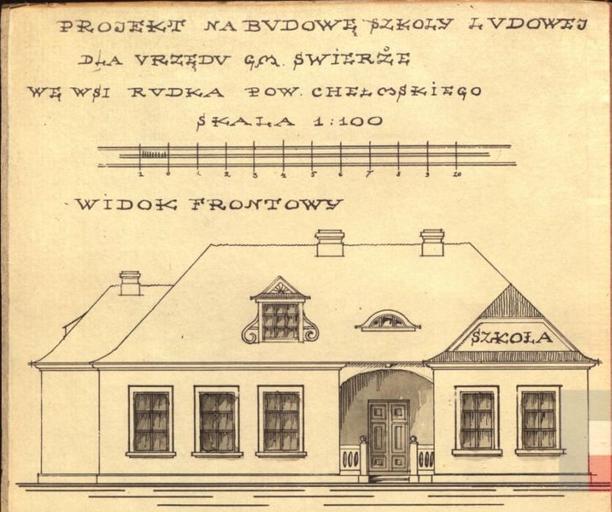 PROJEKT NA BVDOWĘ SZKOLY LVDOWEJ
DLA VRZĘDV GM. SWIERŻE
WĘ WSI RVDKA POW. CHEŁMSKIEGO
SKALA 1:100
1 0 1 2 3 4 5 6 7 8 9 10
WIDOK FRONTOWY
SZKOŁA